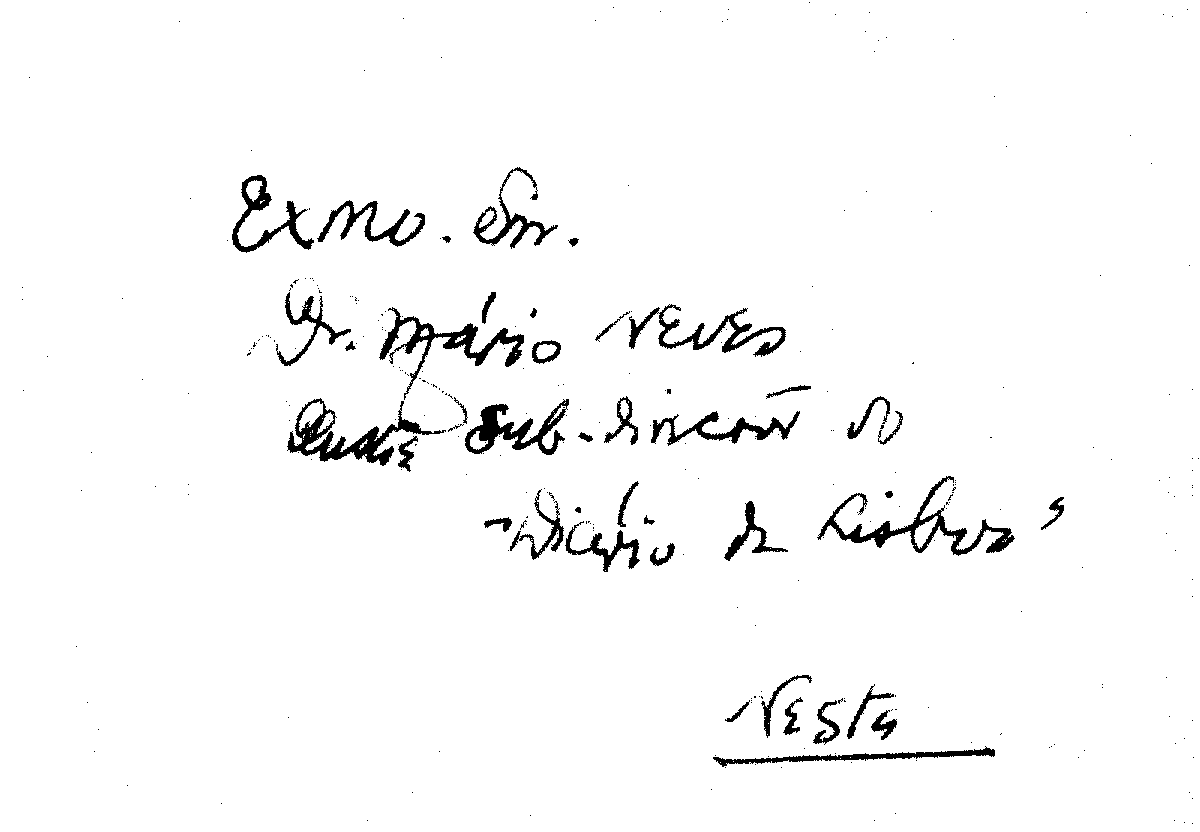 Exmo. Snr.
Dr. Mário Neves
Sub-Director do
"Diário de Lisboa"
Nesta